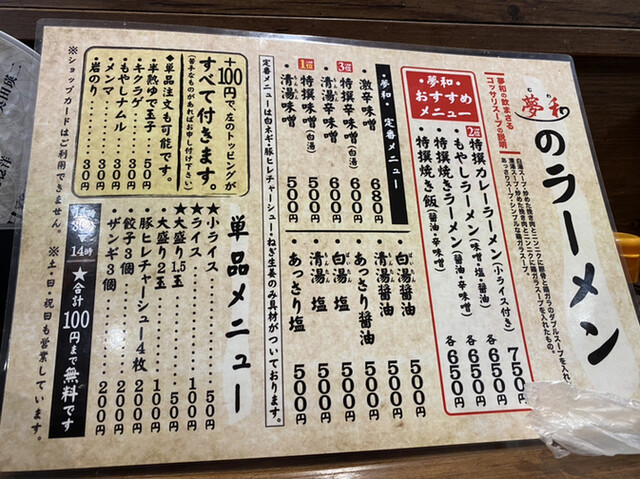 夢和
むわ
のラーメン
夢和の飲まさる
コッサリスープの説明
白湯スープ・炒めた挽き肉とニンニクに豚骨と鶏ガラのダブルスープを入れ
清湯スープ・炒めた挽き肉とニンニクに鶏ガラスープを入れたもの。
あっさりスープ・シンプルな鶏ガラスープ。
・夢和・
おすすめ
メニュー
2位
特撰カレーラーメン(小ライス付き) 750円
もやしラーメン(味噌・塩・醤油) 各650円
特撰焼きラーメン(醤油・辛味噌) 各650円
特撰焼き飯(醤油・辛味噌) 各650円
・夢和・定番メニュー
・激辛味噌 680円
3位
・特撰辛味噌(白湯) 600円
・清湯辛味噌 600円
1位
・特撰味噌(白湯) 500円
・清湯味噌 500円
・白湯醤油 500円
・清湯醤油 500円
・あっさり醤油 500円
・白湯 塩 500円
・清湯 塩 500円
・あっさり塩 500円
定番メニューは白ネギ・豚ヒレチャーシュー・ねぎ生姜のみ具材がついております。
+100円で、左のトッピングが
すべて付きます。
(苦手なものがあればお申し付け下さい)
◆単品注文も可能です。
・半熟ゆで玉子 50円
・キクラゲ 30円
・もやしナムル 30円
・メンマ 30円
・岩のり 30円
単品メニュー
★小ライス 50円
★ライス 100円
★大盛り1.5玉 50円
・大盛り2玉 100円
・豚ヒレチャーシュー4枚 200円
・餃子3個 200円
・ザンギ3個 200円
14時
★合計100円まで無料です
※ショップカードはご利用できません。
※土・日・祝日も営業しています。